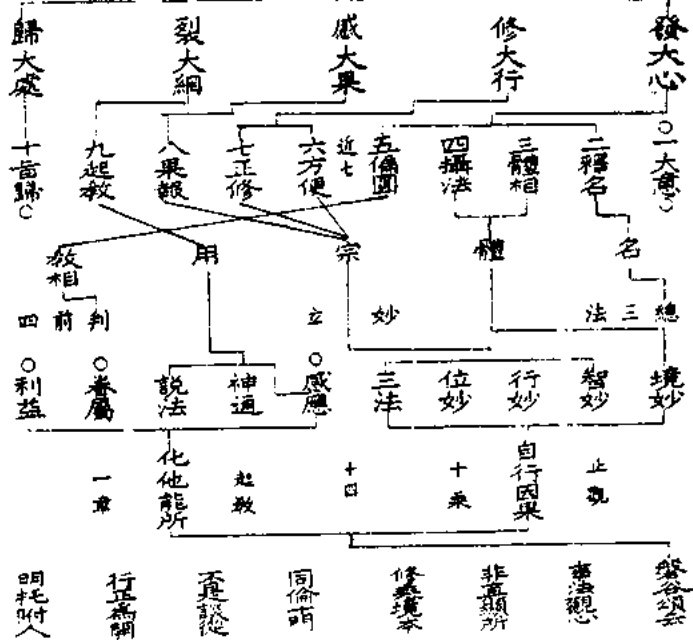 發大心
修大行
感大果
裂大網
歸大處
○一大意○
二釋名
三體相
四攝法
五偏圓
近七
六方便
七正修
八果報
九起教
十旨歸○
名
體
宗
用
教相
總
三
法
妙
立
判
前
四
境妙
智妙
行妙
位妙
三法
○感應
神通
說法
○眷屬
○利益
止觀
自行因果
十乘
十四
起教
化他能所
一章
事法觀心
同倫